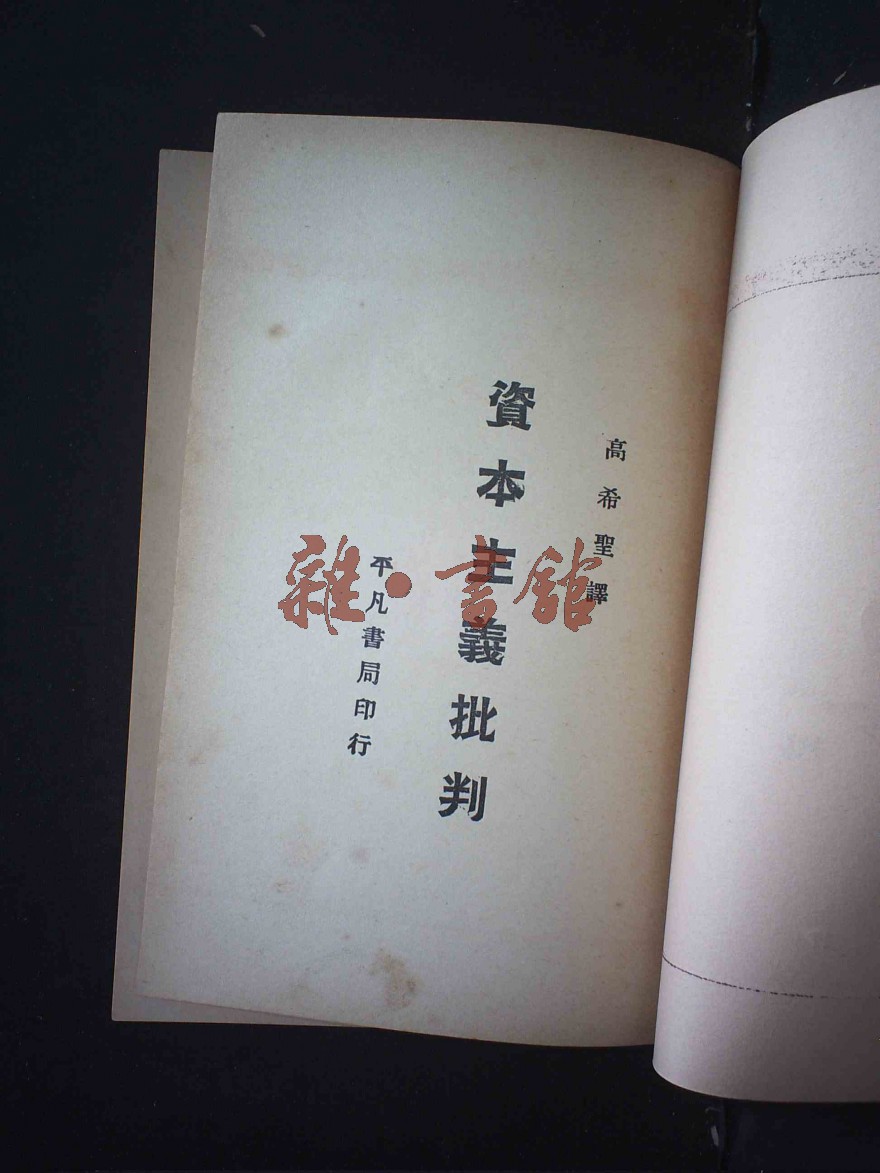 高希聖譯
資本主義批判
平凡書局印行
雜·書館